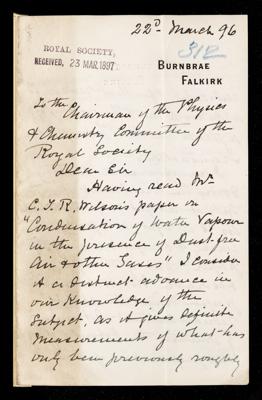 22d. March 96
312
ROYAL SOCIETY,
RECEIVED, 23 MAR.1897
BURNBRAE
FALKIRK
To the
Chairman of the Physics
& Chemistry Committee of the
Royal Society
Dear Sir
Having read Mr
C. T. R. Wilson's paper on
"Condensation of Water Vapour
in the presence of Dust-free
Air & other Gases" I consider
it a distinct advance in
our Knowledge of the
Subject, as it gives definite
measurements of what has
only been previously roughly